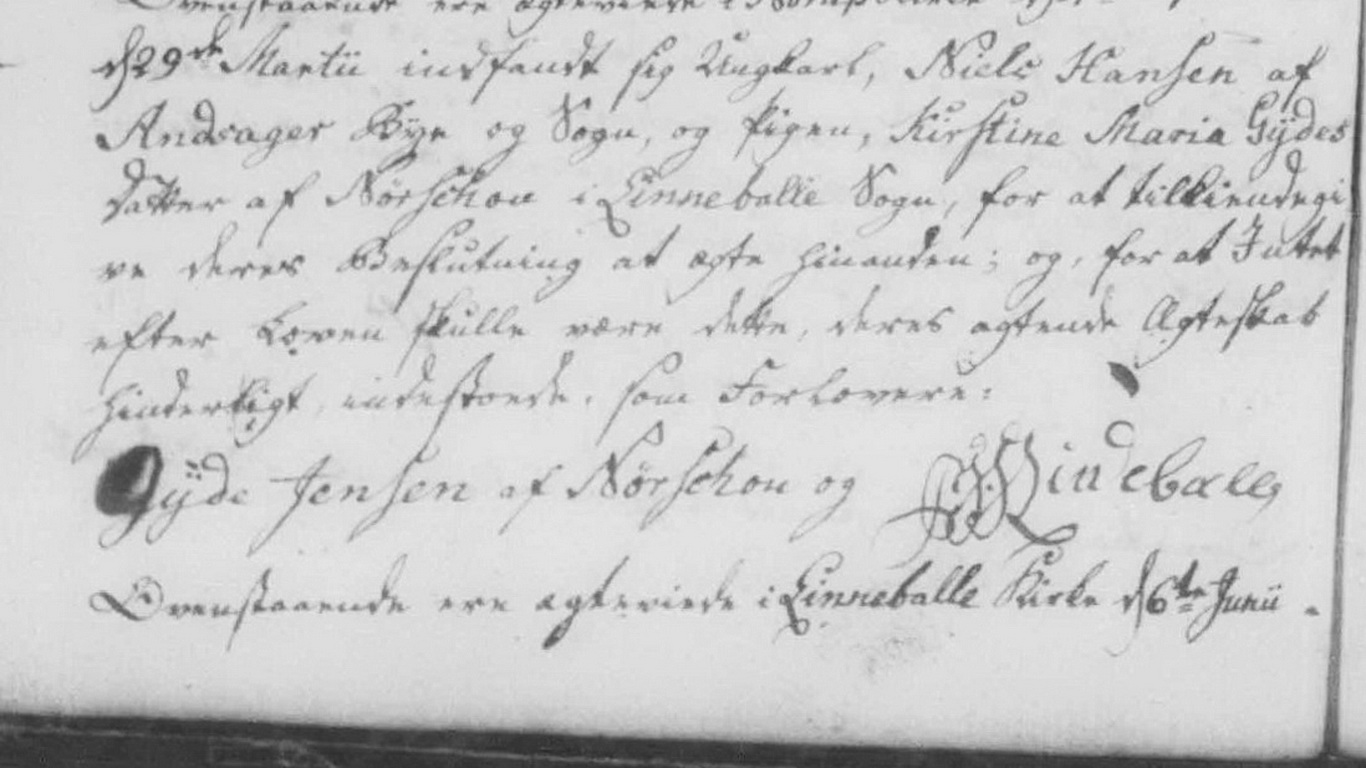 Ovenstaaende ere ægteviede i
d 29de Martii indfandt sig Ungkarl, Niels Hansen af
Andsager Bye og Sogn, og Pigen, Kirstine Maria Gÿdes
datter af Nørschou i Linneballe Sogn, for at tilkiendegi
ve deres Beslutning at ægte hinanden; og, for at Intet
efter Loven skulle være dette, deres agtende Ægteskab
hinderligt, indestoede, som Forlovere:
Gÿde Jensen af Nørschou og Lindeballe
Ovenstaaende ere ægteviede i Linneballe Kirke d 6te Junii.